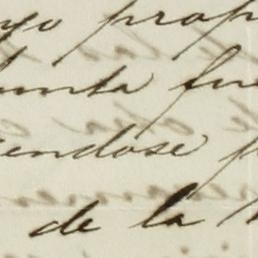 yo prop
unta fue
endose p
de la